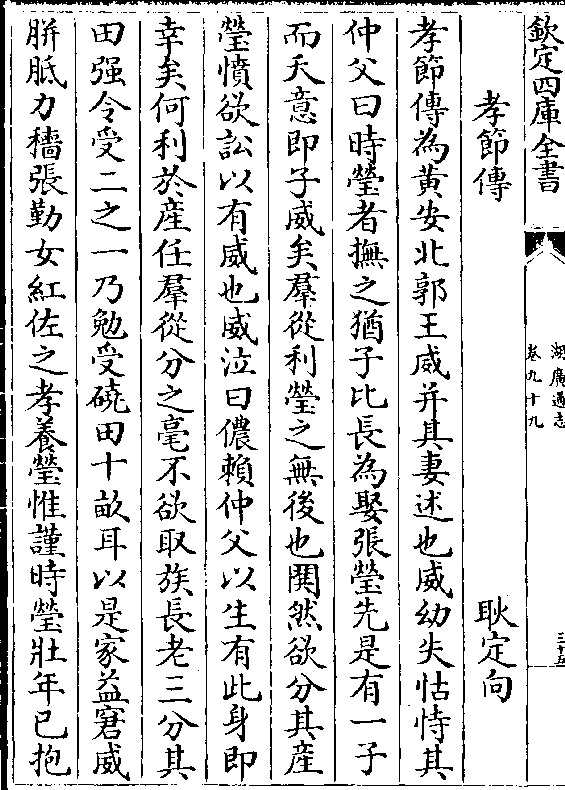 欽定四庫全書
湖廣通志
卷九十九
三十五
孝節傳
耿定向
孝節傳為黃安北郭王威并其妻述也威幼失怙恃其
仲父曰時瑩者撫之猶子比長為娶張瑩先是有一子
而夭意即子威矣羣從利瑩之無後也鬨然欲分其產
瑩憤欲訟以有威也威泣曰儂賴仲父以生有此身即
幸矣何利於產任羣從分之毫不欲取族長老三分其
田强令受二之一乃勉受磽田十畝耳以是家益窘威
胼胝力穡張勤女紅佐之孝養瑩惟謹時瑩壯年已抱